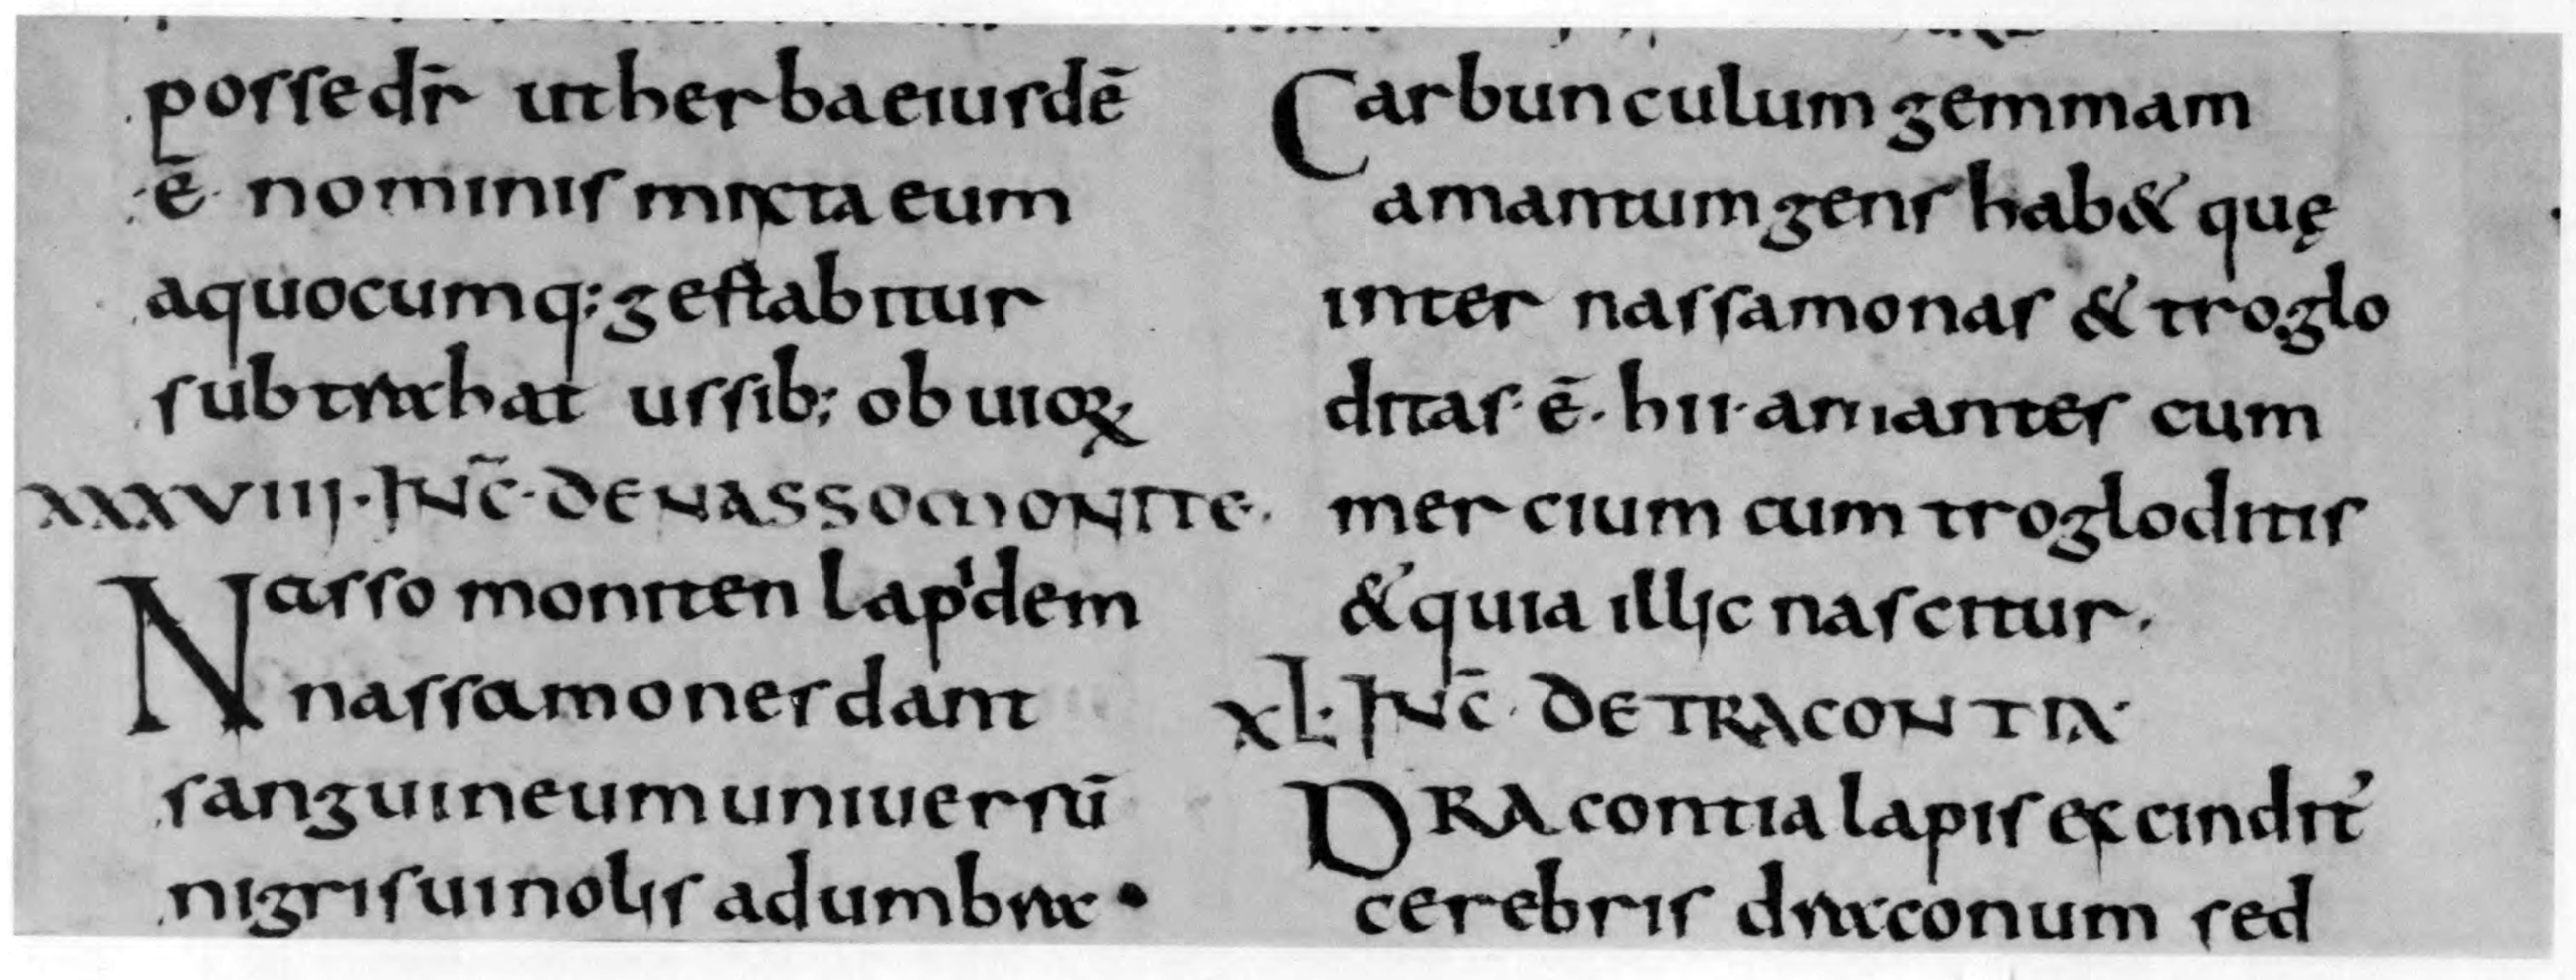 possedr̄ ut herba eiusdē
·ē· nominis mixta eum
aquocumq; gestabitur
subtrahat ussib; obuioꝝ
XXXVIIII· INC̄· DE NASSOMONITE·
Nassomoniten lapidem
nassamones dant
sanguineum uniuersū
nigris uinolis adumbrac·
Carbunculum gemmam
amantum gens hab& quę
inter nassamonas & troglo
ditas· ē· hii· amantes cum
mercium cum trogloditis
& quia illic nascitur·
XL· INC̄· DE TRACONTIA·
DRAcontia lapis excindit'
cerebris draconum sed